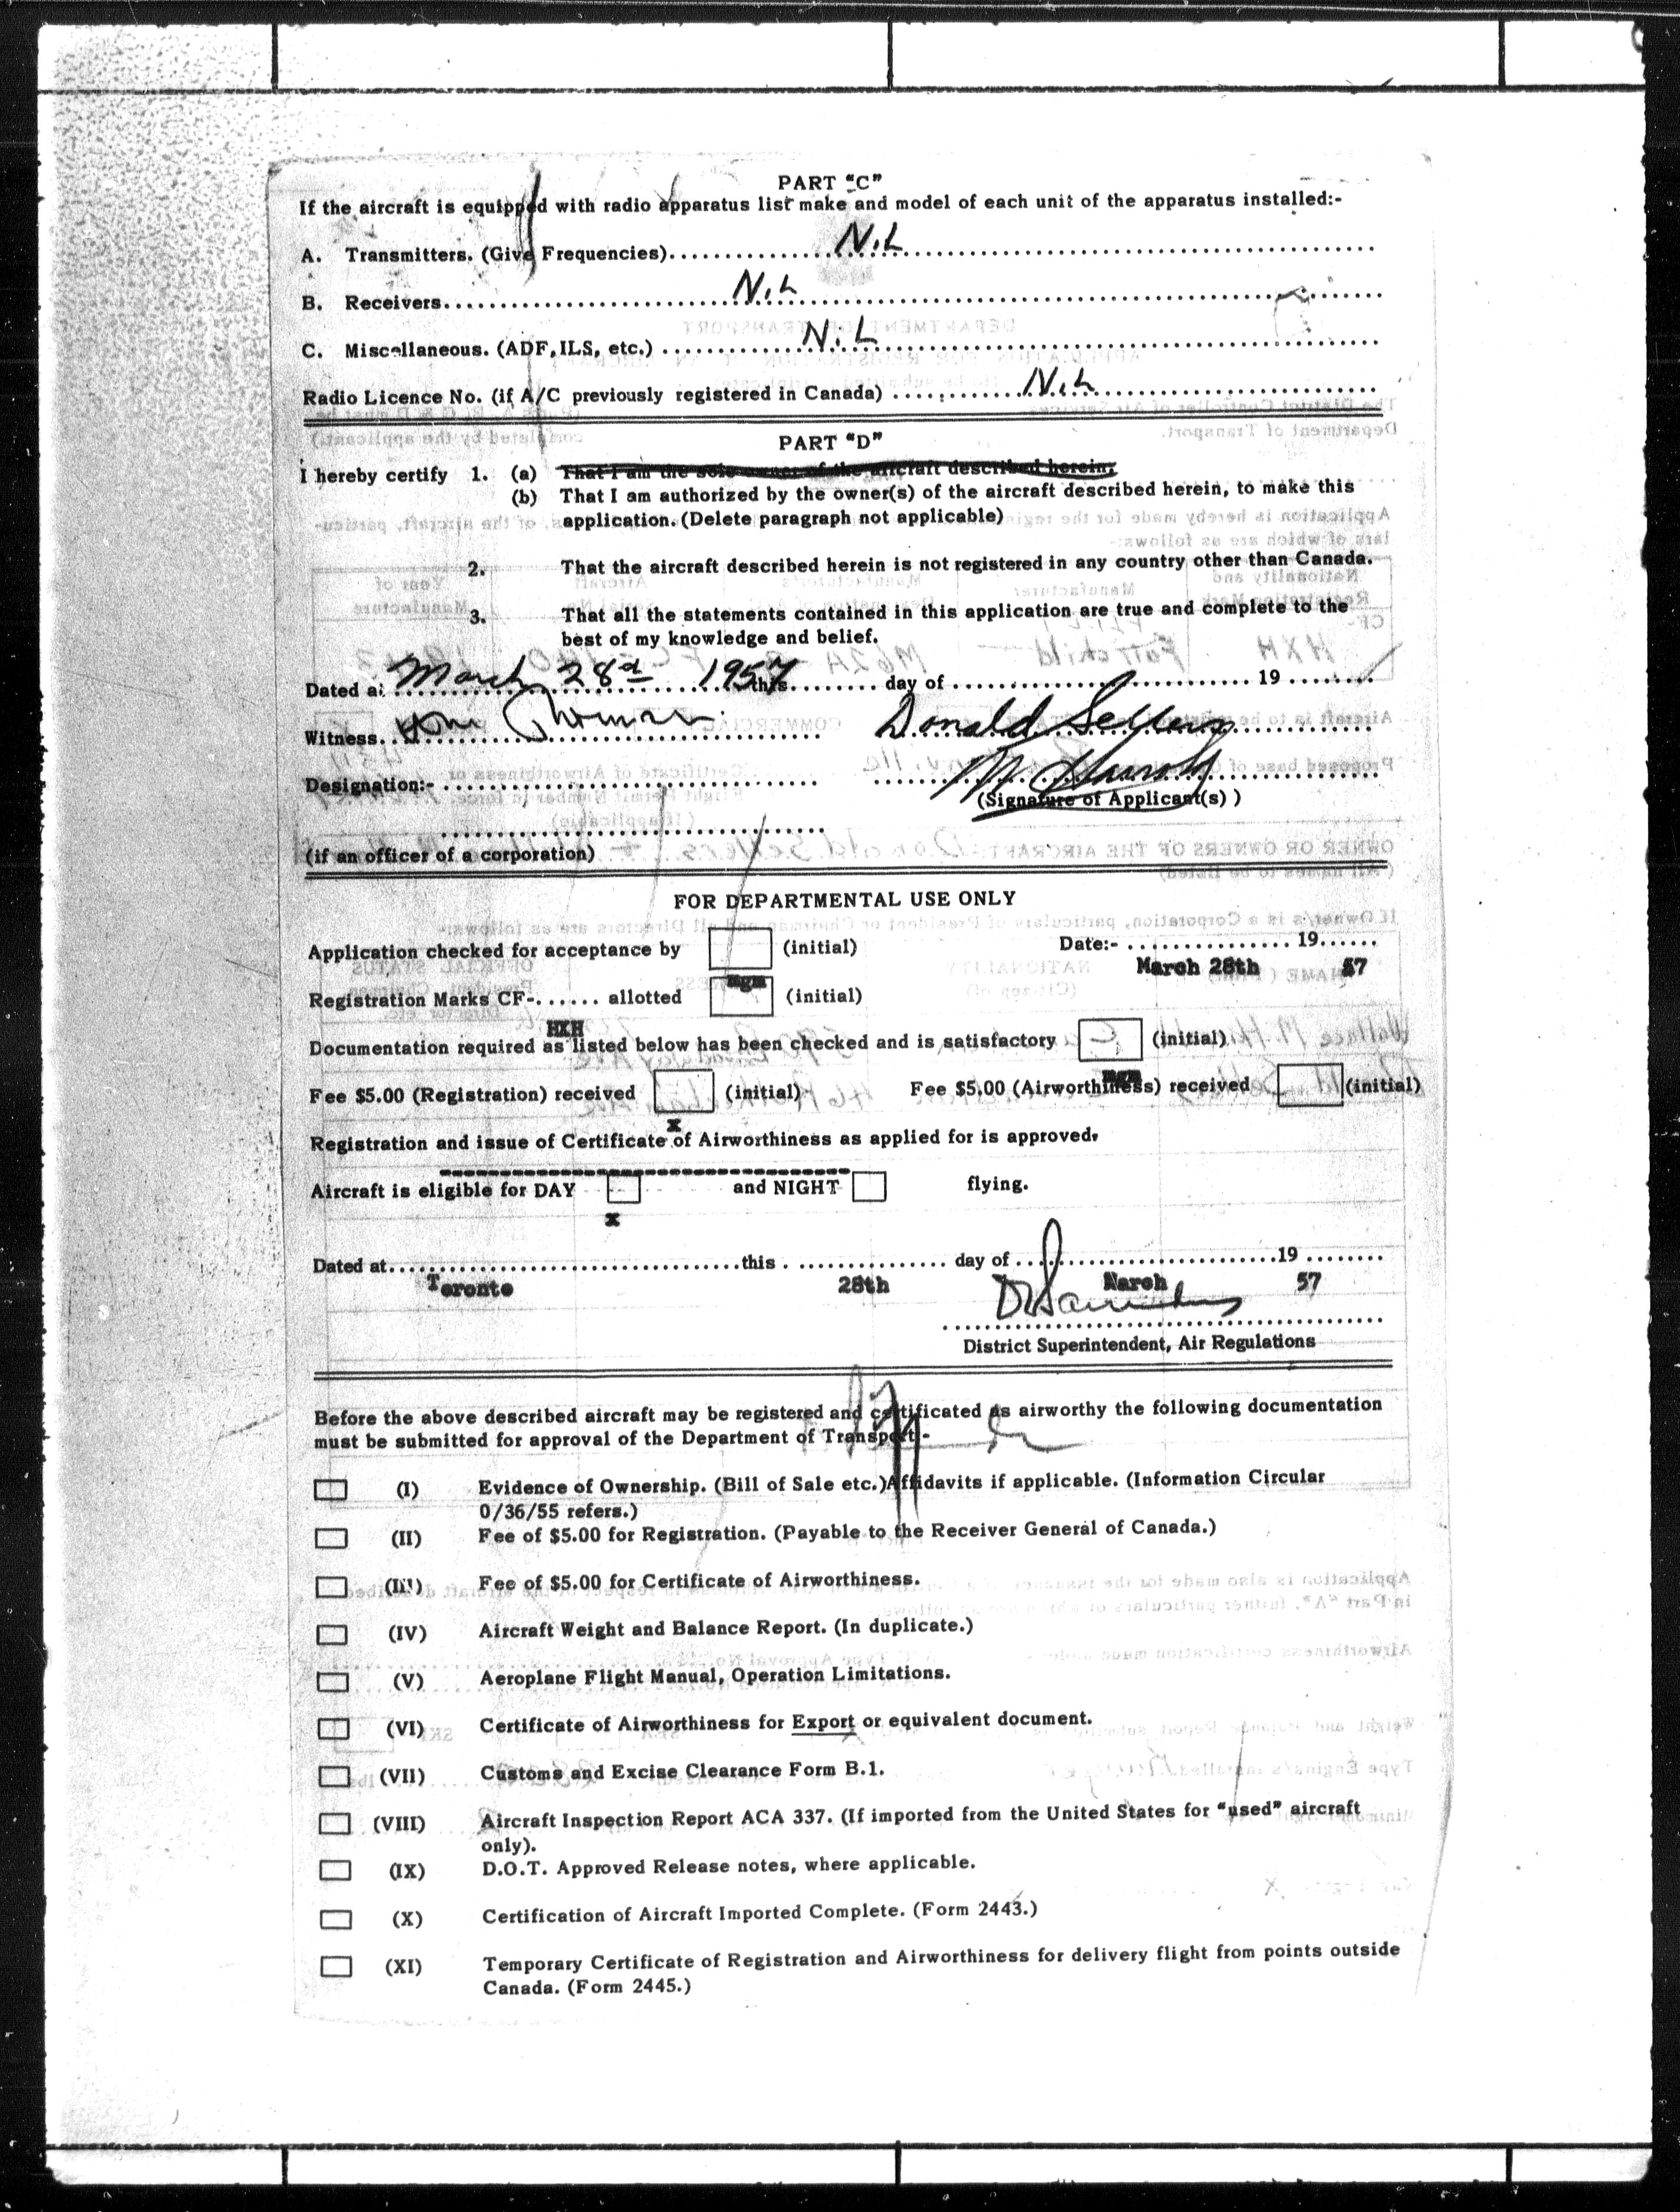 PART "C"
If the aircraft is equipped with radio apparatus list make and model of each unit of the apparatus installed:-
A. Transmitters. (Give Frequencies)..........N.L..........
B. Receivers..........N.L..........
C. Miscellaneous. (ADF, ILS, etc.)..........N.L..........
Radio Licence No. (if A/C previously registered in Canada)..........N.L..........
PART "D"
I hereby certify 1. (a) That I am the sole owner of the aircraft described herein;
(b) That I am authorized by the owner(s) of the aircraft described herein, to make this
application. (Delete paragraph not applicable)
2. That the aircraft described herein is not registered in any country other than Canada.
3. That all the statements contained in this application are true and complete to the
best of my knowledge and belief.
Dated at March 28th 1957 this.........day of..........19........
Witness.......... Donald Sellers
Designation:-..........
(Signature of Applicant(s) )
(if an officer of a corporation)
FOR DEPARTMENTAL USE ONLY
Application checked for acceptance by (initial) Date:-................19......
March 28th 57
Registration Marks CF-...... allotted mgm (initial)
HXH
Documentation required as listed below has been checked and is satisfactory (initial)
Fee $5.00 (Registration) received (initial) Fee $5.00 (Airworthiness) received (initial)
x
Registration and issue of Certificate of Airworthiness as applied for is approved.
Aircraft is eligible for DAY and NIGHT flying.
x
Dated at..........this..........day of..........19........
Toronto 28th March 57
District Superintendent, Air Regulations
Before the above described aircraft may be registered and certificated as airworthy the following documentation
must be submitted for approval of the Department of Transport:-
(I) Evidence of Ownership. (Bill of Sale etc.) Affidavits if applicable. (Information Circular
0/36/55 refers.)
(II) Fee of $5.00 for Registration. (Payable to the Receiver General of Canada.)
(III) Fee of $5.00 for Certificate of Airworthiness.
(IV) Aircraft Weight and Balance Report. (In duplicate.)
(V) Aeroplane Flight Manual, Operation Limitations.
(VI) Certificate of Airworthiness for Export or equivalent document.
(VII) Customs and Excise Clearance Form B.1.
(VIII) Aircraft Inspection Report ACA 337. (If imported from the United States for "used" aircraft
only).
(IX) D.O.T. Approved Release notes, where applicable.
(X) Certification of Aircraft Imported Complete. (Form 2443.)
(XI) Temporary Certificate of Registration and Airworthiness for delivery flight from points outside
Canada. (Form 2445.)